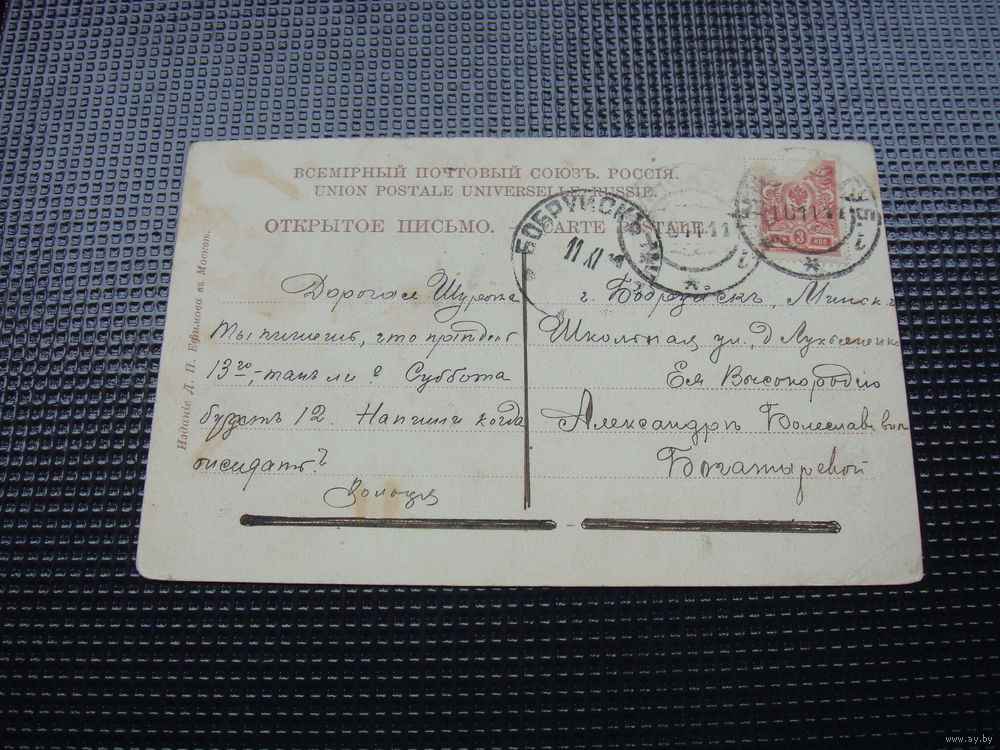 ВСЕМІРНЫЙ ПОЧТОВЫЙ СОЮЗЪ. РОССІЯ.
UNION POSTALE UNIVERSELLE. RUSSIE.
ОТКРЫТОЕ ПИСЬМО. CARTE POSTALE.
БОБРУЙСКЪ
11 XI
3 КОП
Изданіе Д. П. Ефимова въ Москвѣ.
Дорогая Шурочка
Ты пишешь, что пріѣдешь
13го,-такъ ли? Суббота
будетъ 12. Напиши когда
ожидать?
г. Бобруйскъ, Минск. г
Школьная ул, д Лукьяненко
Ея Высокородію
Александрѣ Болеславовнѣ
Богатыревой
www.ay.by